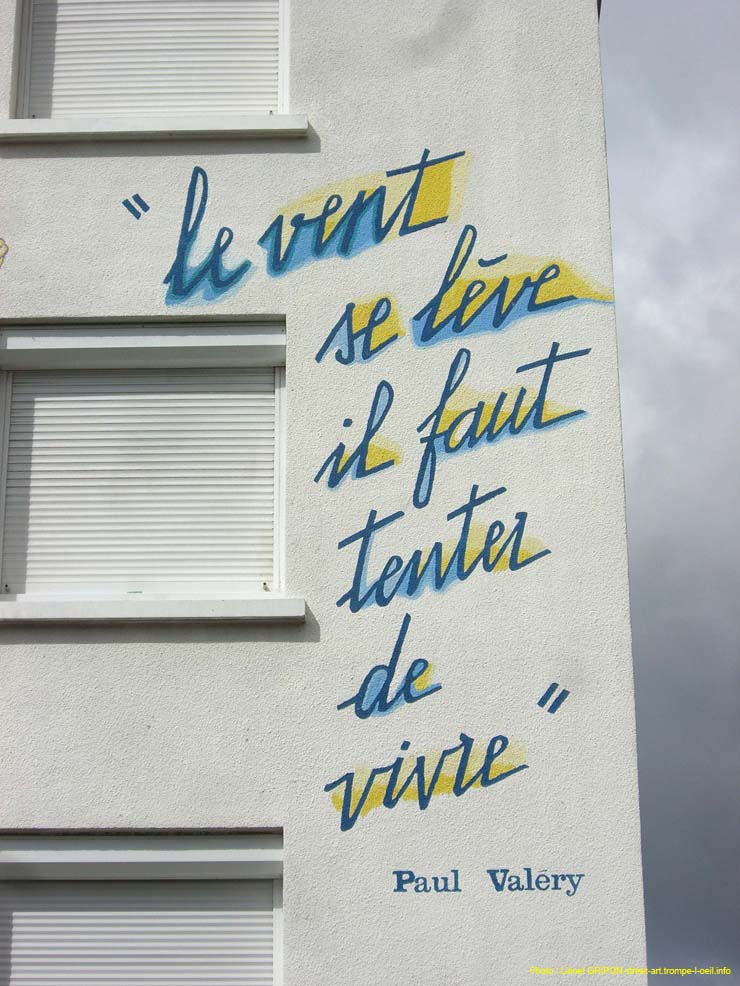 " le vent
se lève
il faut
tenter
de
vivre "
Paul Valéry
Photo : Lionel GRIPON street-art.trompe-l-oeil.info